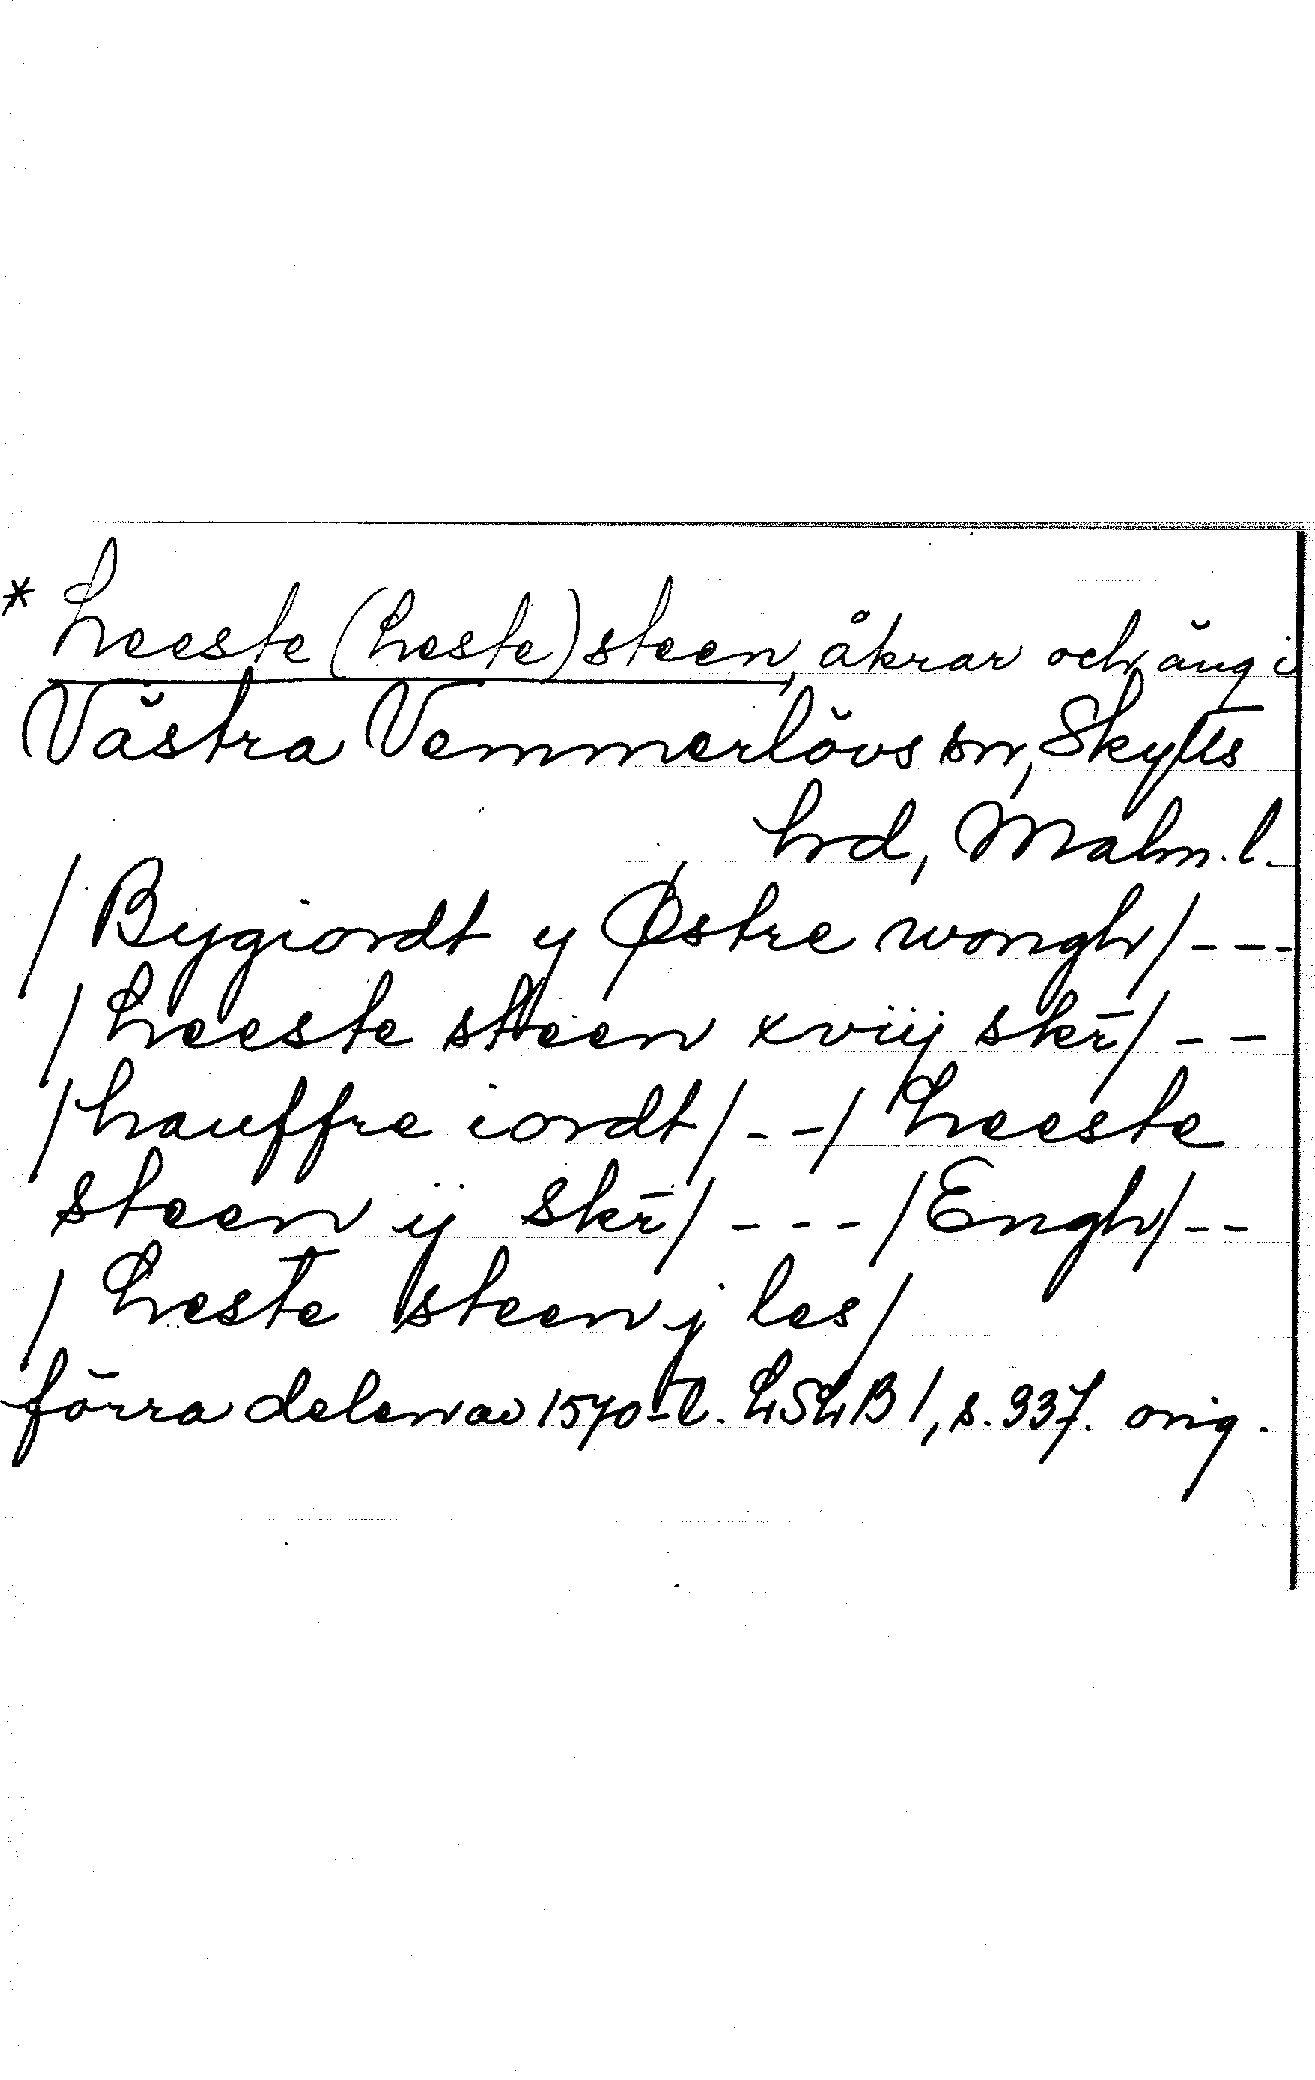 * heeste (heste) steen, åkrar och äng i
Västra Vemmerlövs sn, Skytts
hrd, Malm. l.
/ Bygiordt y Østre wongh / - - -
/ heeste steen xviij skr̄ / - -
/ hauffre iordt / - - / heeste
steen ij skr̄ / - - - / Engh / - -
/ heste steen j les /
förra delen av 1570-t. LSLB 1, s. 337. orig.